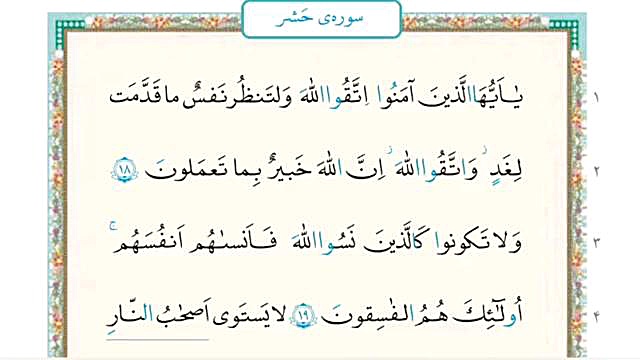 سوره‌ی حَشر
یٰـاَیُّهَا الَّذینَ آمَنُوا اِتَّقُوا اللهَ وَلتَنظُر نَفسٌ ما قَدَّمَت ١
لِغَدٍ وَاتَّقُوا اللهَ اِنَّ اللهَ خَبیرٌ بِما تَعمَلونَ ١٨ ٢
وَلا تَکونوا کَالَّذینَ نَسُوا اللهَ فَـاَنسىٰهُم اَنفُسَهُم ۚ ٣
اُولـٰٓئِکَ هُمُ الفٰسِقونَ ١٩ لا یَستَوی اَصحٰبُ النّارِ ۴